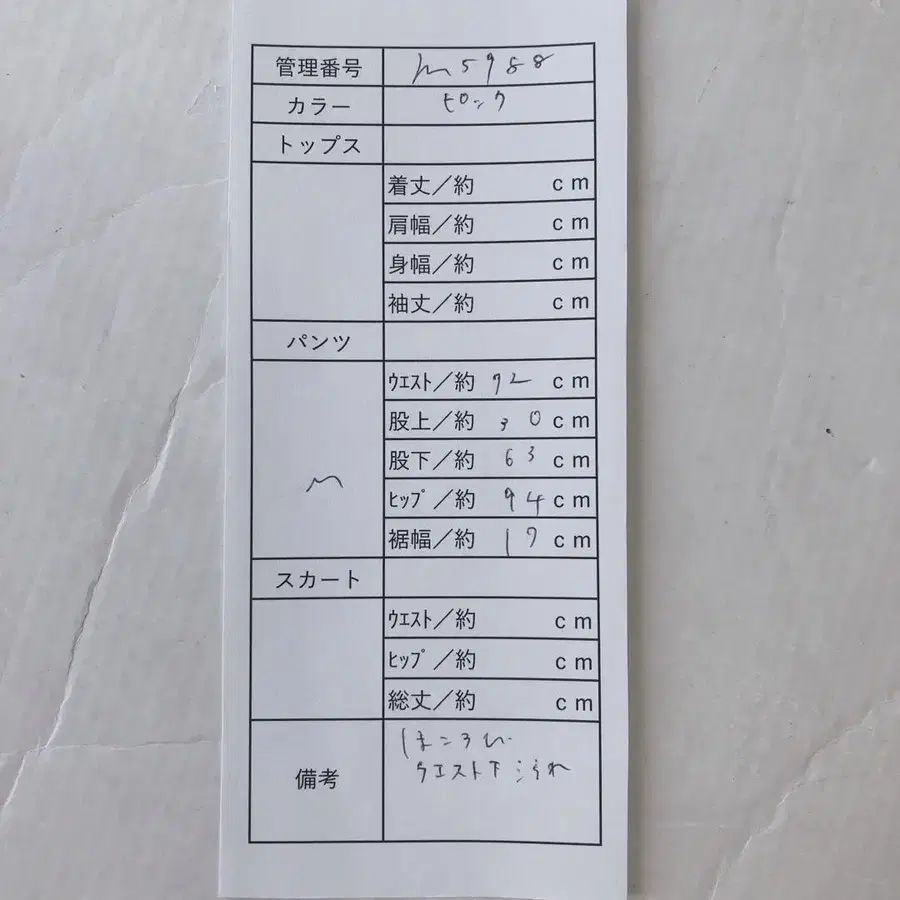 管理番号 m5988
カラー ピンク
トップス
着丈／約 cm
肩幅／約 cm
身幅／約 cm
袖丈／約 cm
パンツ
M
ｳｴｽﾄ／約 72 cm
股上／約 30 cm
股下／約 63 cm
ﾋｯﾌﾟ／約 94 cm
裾幅／約 17 cm
スカート
ｳｴｽﾄ／約 cm
ﾋｯﾌﾟ／約 cm
総丈／約 cm
備考
ほころび
ウエスト下汚れ